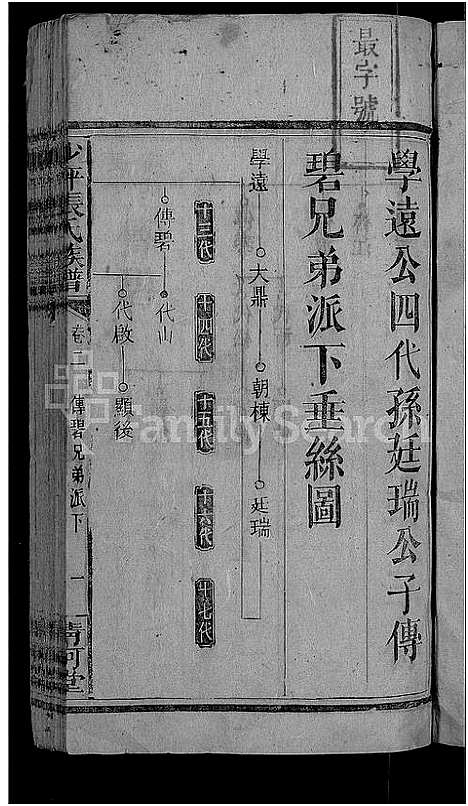 最字號
學遠公四代孫廷瑞公子傳
碧兄弟派下垂絲圖
學遠 大鼎 朝棟 廷瑞
十三代 十四代 十五代 十六代 十七代
傳碧 代山
代啟 顯後
沙坪張氏族譜 卷二 傳碧兄弟派下 一 清河堂
FamilySearch